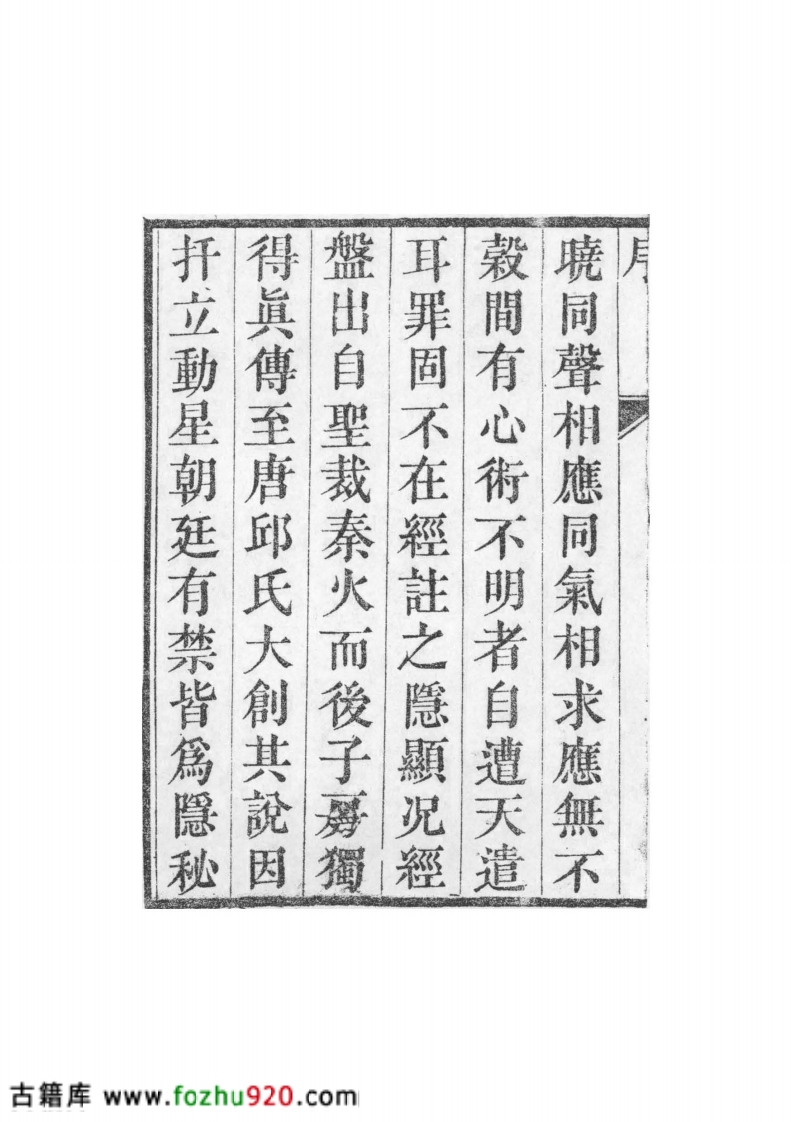 序
曉同聲相應同氣相求應無不
榖間有心術不明者自遭天遣
耳罪固不在經註之隱顯况經
盤出自聖裁秦火而後子房獨
得眞傳至唐邱氏大創其說因
扦立動星朝廷有禁皆爲隱秘
古籍库 www.fozhu920.com